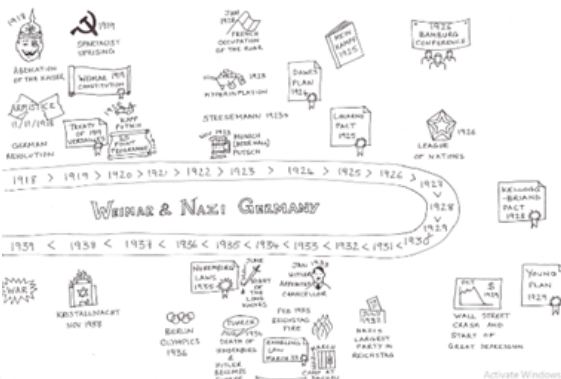 1918
ABDICATION
OF THE KAISER
ARMISTICE
11/11/1918
GERMAN
REVOLUTION
1919
SPARTACIST
UPRISING
WEIMAR 1919
CONSTITUTION
TREATY
OF 1919
VERSAILLES
KAPP
PUTSCH
25
POINT
PROGRAMME
JAN
FRENCH
OCCUPATION
OF THE RUHR
1923
HYPERINFLATION
STRESEMANN 1923
NOV 1923
MUNICH
(BEER HALL)
PUTSCH
DAWES
PLAN
1924
MEIN
KAMPF
1925
LOCARNO
PACT
1925
1926
BAMBURG
CONFERENCE
1926
LEAGUE
OF NATIONS
1918 > 1919 > 1920 > 1921 > 1922 > 1923 > 1924 > 1925 > 1926 > 1927
1928
1929
WEIMAR & NAZI GERMANY
KELLOGG
-BRIAND
PACT
1928
1939 < 1938 < 1937 < 1936 < 1935 < 1934 < 1933 < 1932 < 1931 < 1930
WAR
KRISTALLNACHT
NOV 1938
BERLIN
OLYMPICS
1936
NUREMBURG
LAWS
1935
JUNE
NIGHT
OF THE
LONG
KNIVES
FUHRER
1934
DEATH OF
HINDENBURG
&
HITLER
BECOMES
JAN 1933
HITLER
APPOINTED
CHANCELLOR
FEB 1933
REICHSTAG
FIRE
ENABLING
LAW
MARCH 33
MARCH
CAMP AT
1932
NAZIS
LARGEST
PARTY IN
REICHSTAG
OCT
$
1929
WALL STREET
CRASH AND
START OF
GREAT DEPRESSION
YOUNG
PLAN
1929
Activate Windows